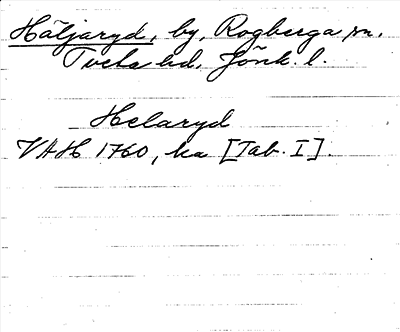 Häljaryd, by, Rogberga sn.
Tveta hd. Jönk. l.
Helaryd
VAH 1760, ka [Tab. I].